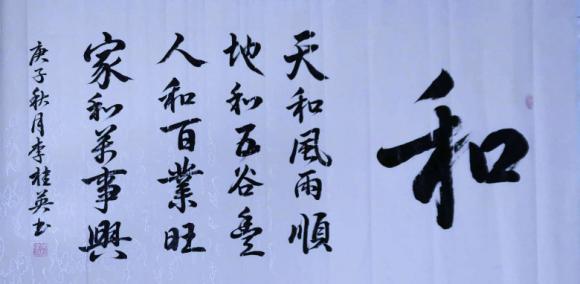 和
天和風雨順
地和五谷豐
人和百業旺
家和万事興
庚子秋月李桂英书